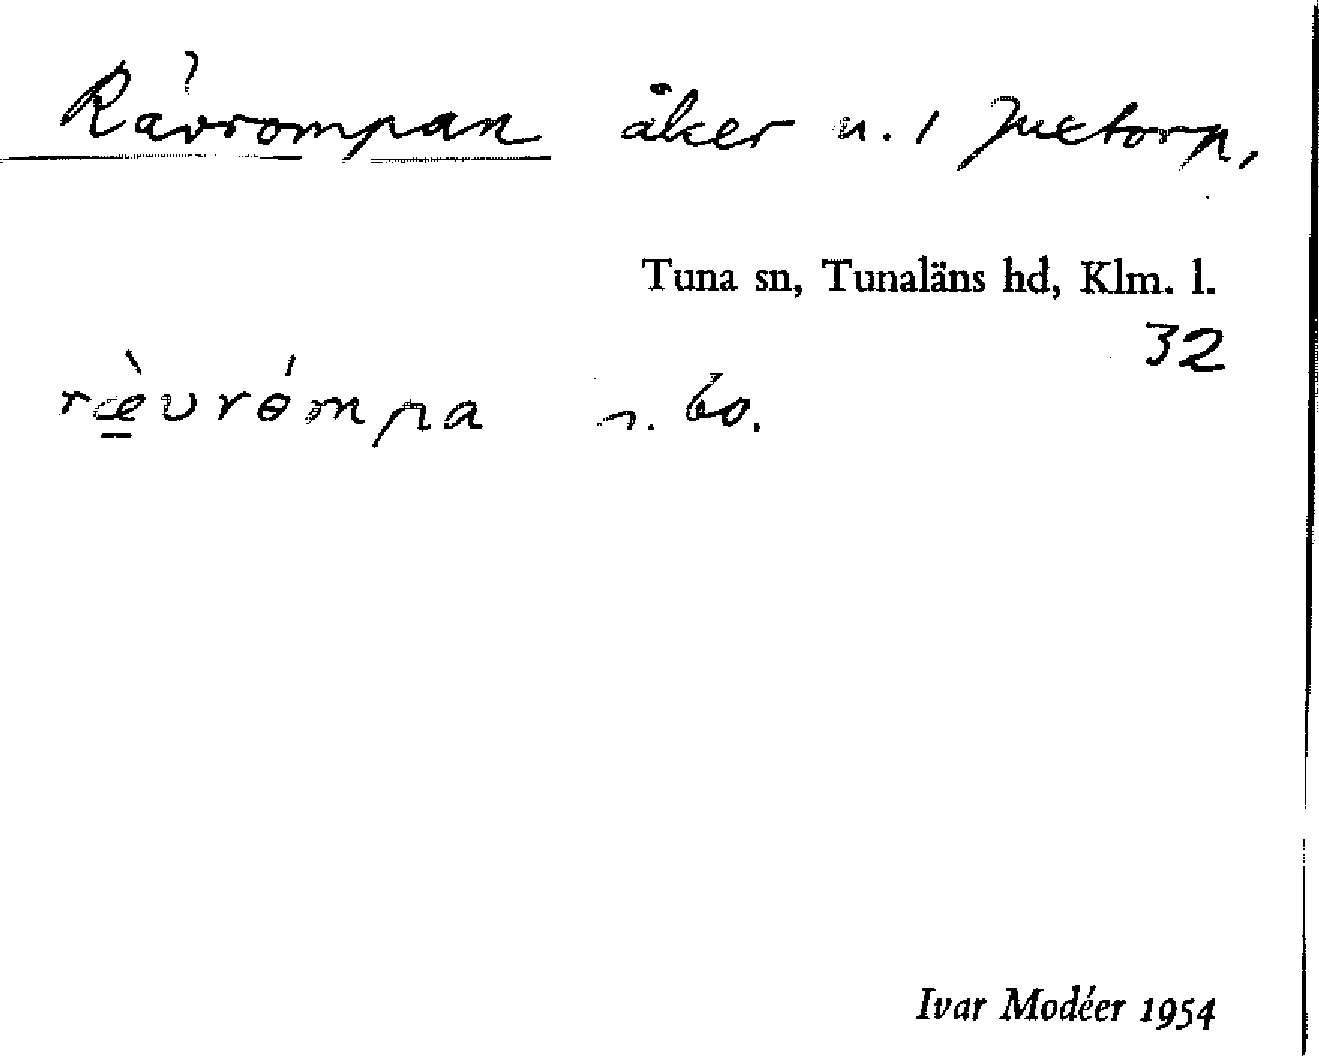 Rävrompan åker u. 1 Juetorp,
Tuna sn, Tunaläns hd, Klm. l.
32
rævrɵmpa n. bo.
Ivar Modéer 1954